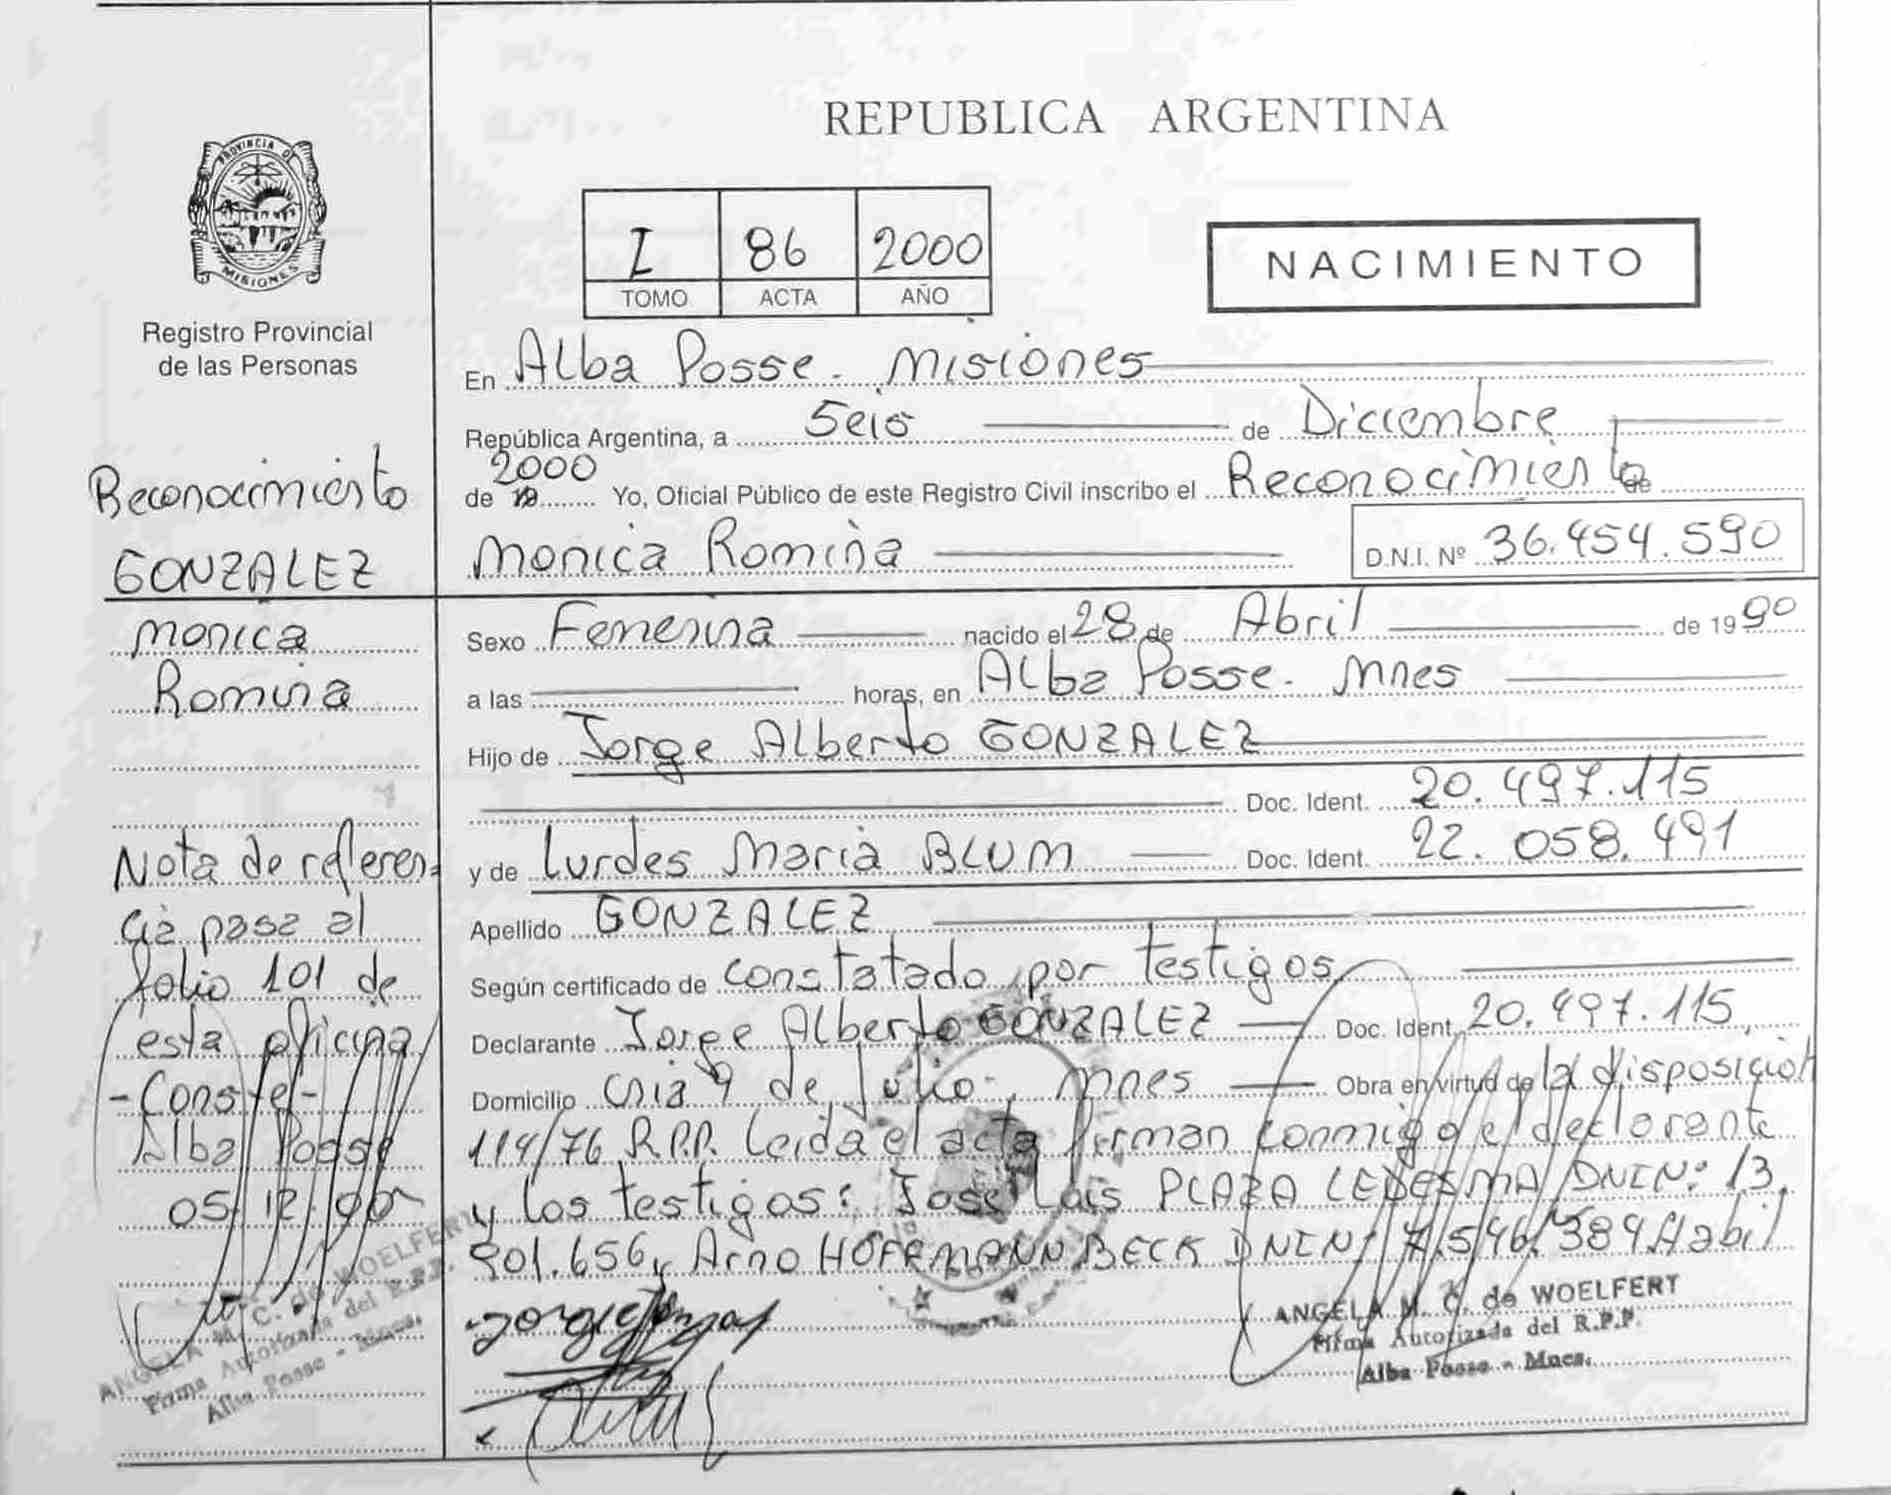 REPUBLICA ARGENTINA
PROVINCIA DE
MISIONES
Registro Provincial
de las Personas
I 86 2000
TOMO ACTA AÑO
NACIMIENTO
En Alba Posse - Misiones
República Argentina, a Seis de Diciembre
de 19 2000 Yo, Oficial Público de este Registro Civil inscribo el Reconocimiento de
Monica Romina D.N.I. Nº 36.454.590
Sexo Femenina nacido el 28 de Abril de 1990
a las horas, en Alba Posse - Mnes
Hijo de Jorge Alberto GONZALEZ
Doc. Ident. 20.497.115
y de Lurdes Maria BLUM Doc. Ident. 22.058.491
Apellido GONZALEZ
Según certificado de constatado por testigos
Declarante Jorge Alberto GONZALEZ Doc. Ident. 20.497.115
Domicilio Cnia 9 de Julio - Mnes Obra en virtud de la disposición
114/76 R.P.P. Leida el acta firman conmigo el declarante
y los testigos: Jose Luis PLAZA LEDESMA DNI Nº: 13.
901.656 y Arno HOFFMANN BECK DNI Nº 7.546.389 Habil
ANGELA M. C. de WOELFERT
Firma Autorizada del R.P.P.
Alba Posse - Mnes.
Reconocimiento
GONZALEZ
Monica
Romina
Nota de referen-
cia pasa al
folio 101 de
esta oficina
- Conste -
Alba Posse
05.12.00
ANGELA M. C. de WOELFERT
Firma Autorizada del R.P.P.
Alba Posse - Mnes.